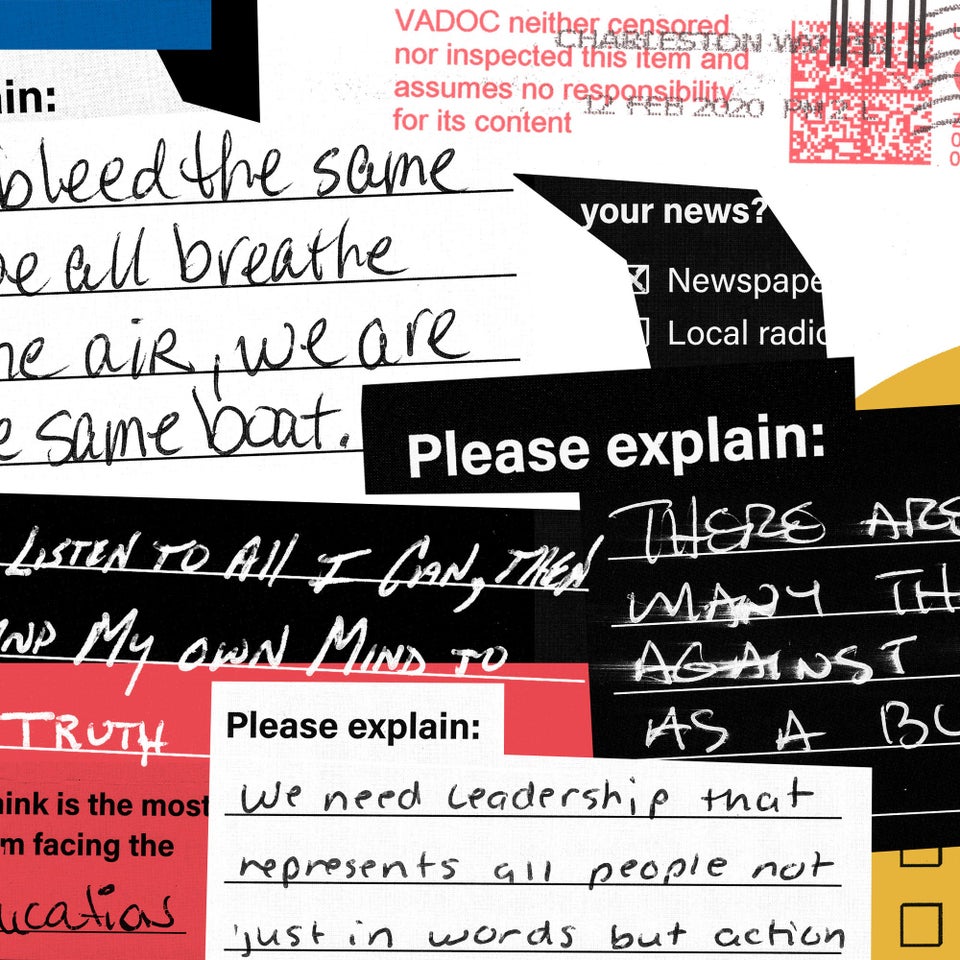 VADOC neither censored
nor inspected this item and
assumes no responsibility
for its content
CHARLESTON WV
12 FEB 2020 PM 2 L
in:
bleed the same
we all breathe
air, we are
same boat.
your news?
Newspape
Local radio
Please explain:
LISTEN TO All I CAN, THEN
My OWN MIND TO
TRUTH
THERE ARE
MANY TH
AGAINST
AS A
Please explain:
We need leadership that
represents all people not
just in words but action
ink is the most
m facing the
ucation